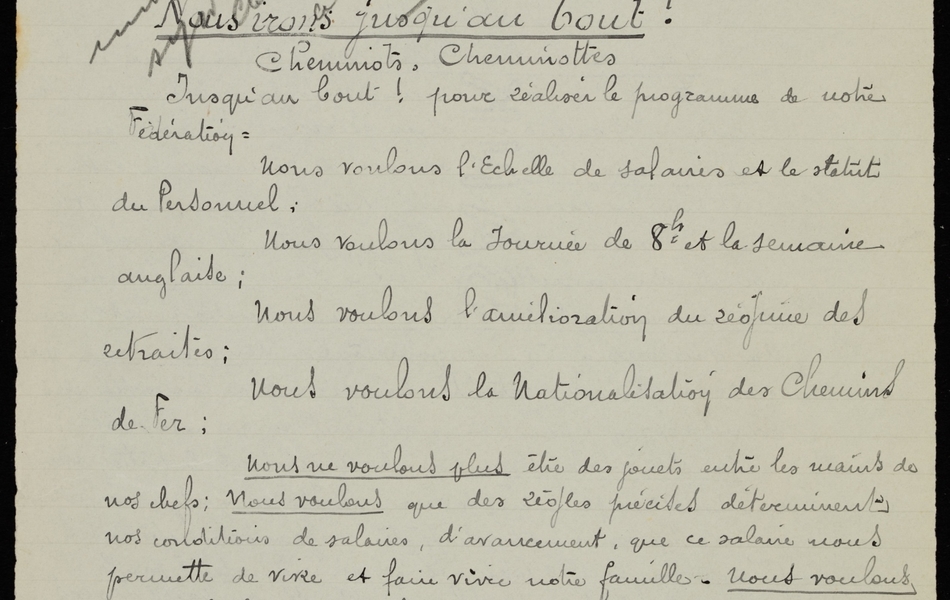 Nous irons jusqu'au bout !
Cheminots, Cheminottes
Jusqu'au bout ! pour réaliser le programme de notre
Fédération =
Nous voulons l'Echelle de salaires et le statut
du Personnel ;
Nous voulons la Journée de 8h et la semaine
anglaise ;
Nous voulons l'amélioration du régime des
retraites ;
Nous voulons la Nationalisation des Chemins
de Fer ;
Nous ne voulons plus être des jouets entre les mains de
nos chefs ; Nous voulons que des règles précises déterminent
nos conditions de salaires, d'avancement, que ce salaire nous
permette de vivre et faire vivre notre famille - Nous voulons